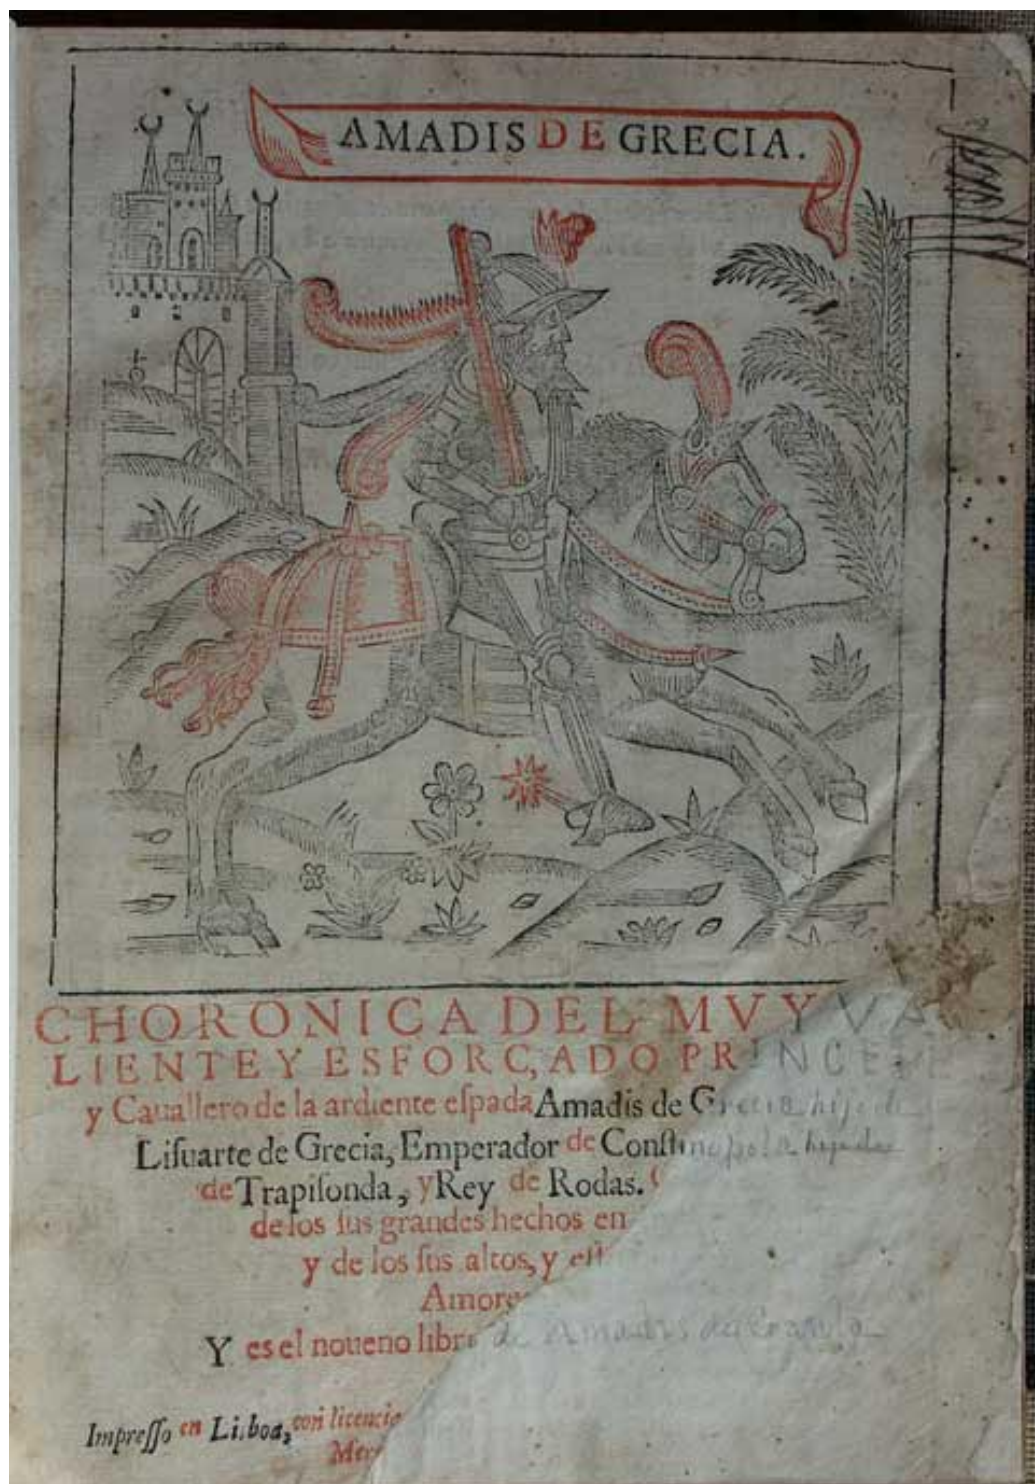 AMADIS DE GRECIA.
CHORONICA DEL MVY VA
LIENTE Y ESFORÇADO PRINCEPE
y Cauallero de la ardiente eſpada Amadis de Grecia hijo de
Liſuarte de Grecia, Emperador de Conſtinopola hijo de
de Trapiſonda, y Rey de Rodas.
de los ſus grandes hechos en
y de los ſus altos, y eſt
Amores
Y es el noueno libro de Amadis de
Impreſſo en Liſboa, con licencia
Mer